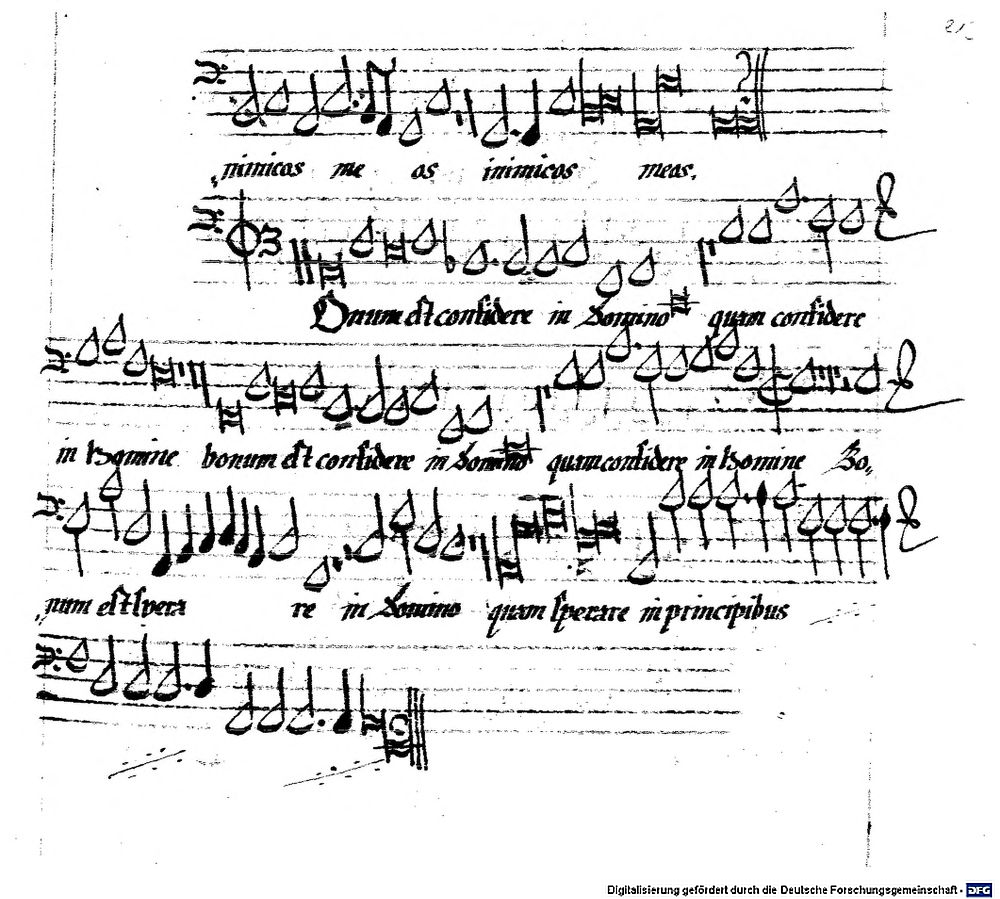 215
nimicos me os inimicos meos.
Bonum est confidere in Domino quam confidere
in homine bonum est confidere in Domino quam confidere in homine Bo„
num est spera re in Domino quam sperare in principibus
Digitalisierung gefördert durch die Deutsche Forschungsgemeinschaft - DFG